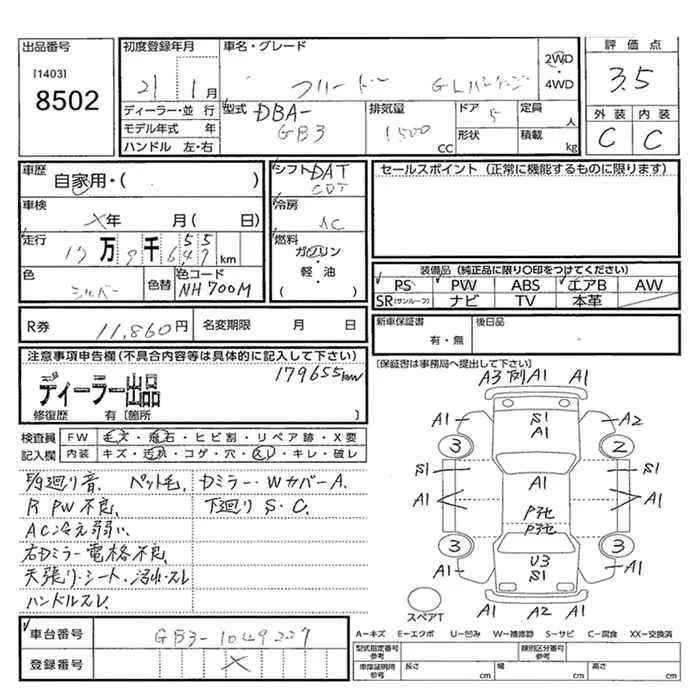 出品番号
[1403]
8502
初度登録年月
21年 1月
車名・グレード
フリード GLパッケージ
2WD
・
4WD
評価点
3.5
外装 内装
C C
ディーラー・並行
モデル年式 年
ハンドル 左・右
型式 DBA-
GB3
排気量
1500
CC
ドア 5
形状
定員
人
積載
kg
車歴 自家用・( )
車検 X年 月( 日)
走行
万 千
km
色 シルバー
色替
色コード
NH700M
シフト DAT
CDT
冷房
AC
燃料
ガソリン
・
軽・油
( )
セールスポイント (正常に機能するものに限ります)
装備品 (純正品に限り〇印をつけてください)
PS PW ABS エアB AW
SR(サンルーフ) ナビ TV 本革
R券 11,860円 名変期限 月 日
新車保証書
有・無
後日品
(保証書は事務局へ提出して下さい)
注意事項申告欄(不具合内容等は具体的に記入して下さい)
179655km
ディーラー出品
修復歴 有〔箇所 〕
検査員 FW 毛ズ・飛石・ヒビ割・リペア跡・X要
記入欄 内装 キズ・汚れ・コゲ・穴・スレ・キレ・破レ
ペット毛、
R PW 不良、
AC冷え弱い、
右Dミラー電格不良、
天張り・シート・汚れ・スレ
ハンドルスレ、
Dミラー・WカバーA.
下廻り S・C.
A3 A1
S1
A1
A1 A2
3 2
S1 S1
A1 A1 A1
P3セ
P3セ
3 3
U3
S1
A1 A1
A1 A2 A1
スペアT
車台番号 GB3-1049227
登録番号 X
A-キズ E-エクボ U-凹み W-補修跡 S-サビ C-腐食 XX-交換済
型式指定番号
参考
類別区分番号
参考
車庫証明時
参考
長さ cm 幅 cm 高さ cm